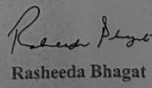 Rasheeda Bhagat
Rasheeda Bhagat